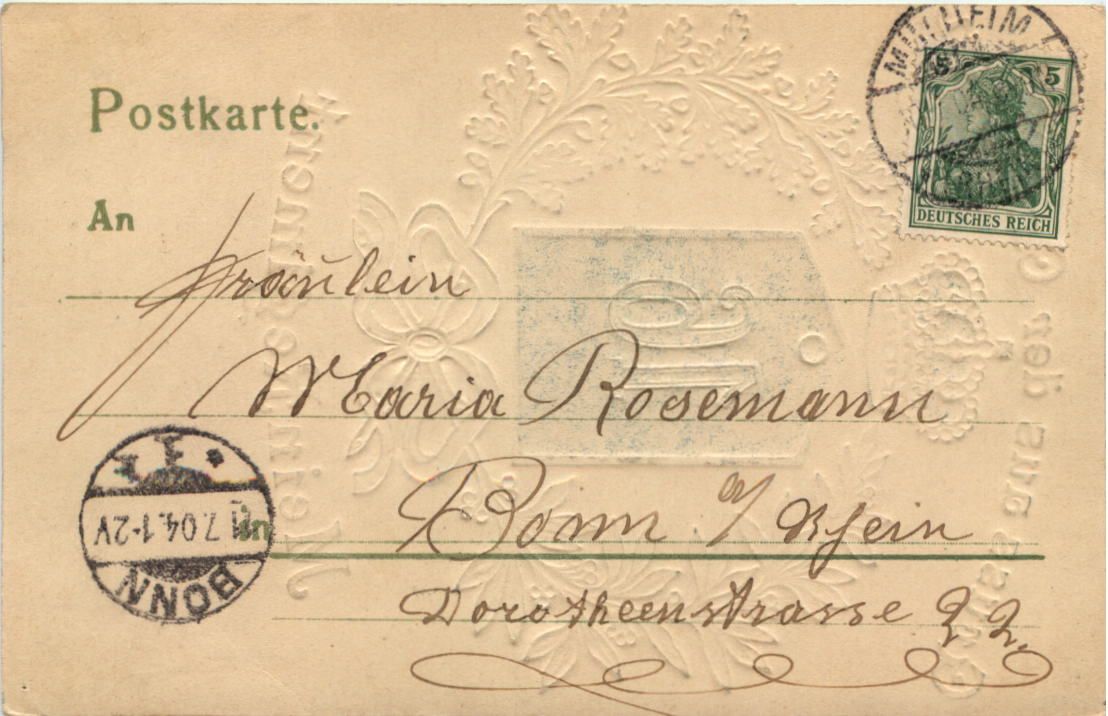 MÜLHEIM
5 5
DEUTSCHES REICH
Postkarte.
An
Fräulein
Maria Rosemann
in
Bonn a/ Rhein
Dorotheenstrasse 22.
BONN
7.04.1-2V